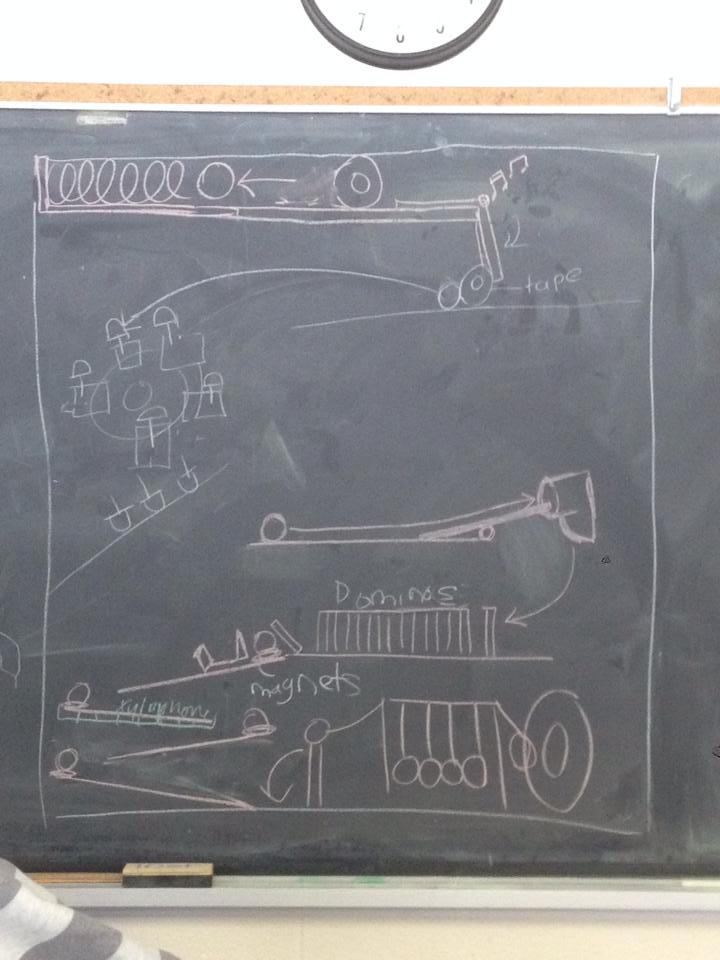 7
tape
Dominos
magnets
xylophone